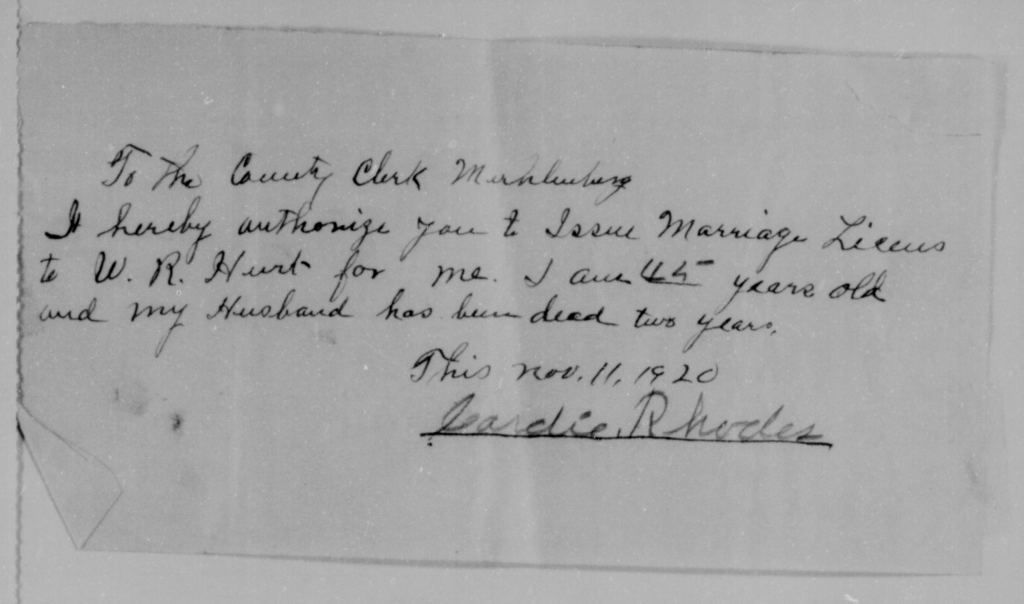 To The County Clerk Mecklenburg
I hereby authorize you to Issue Marriage Licens
to W. R. Hurt for me. I am 45 years old
and my Husband has been dead two years.
This nov. 11, 1920
Cardie Rhodes